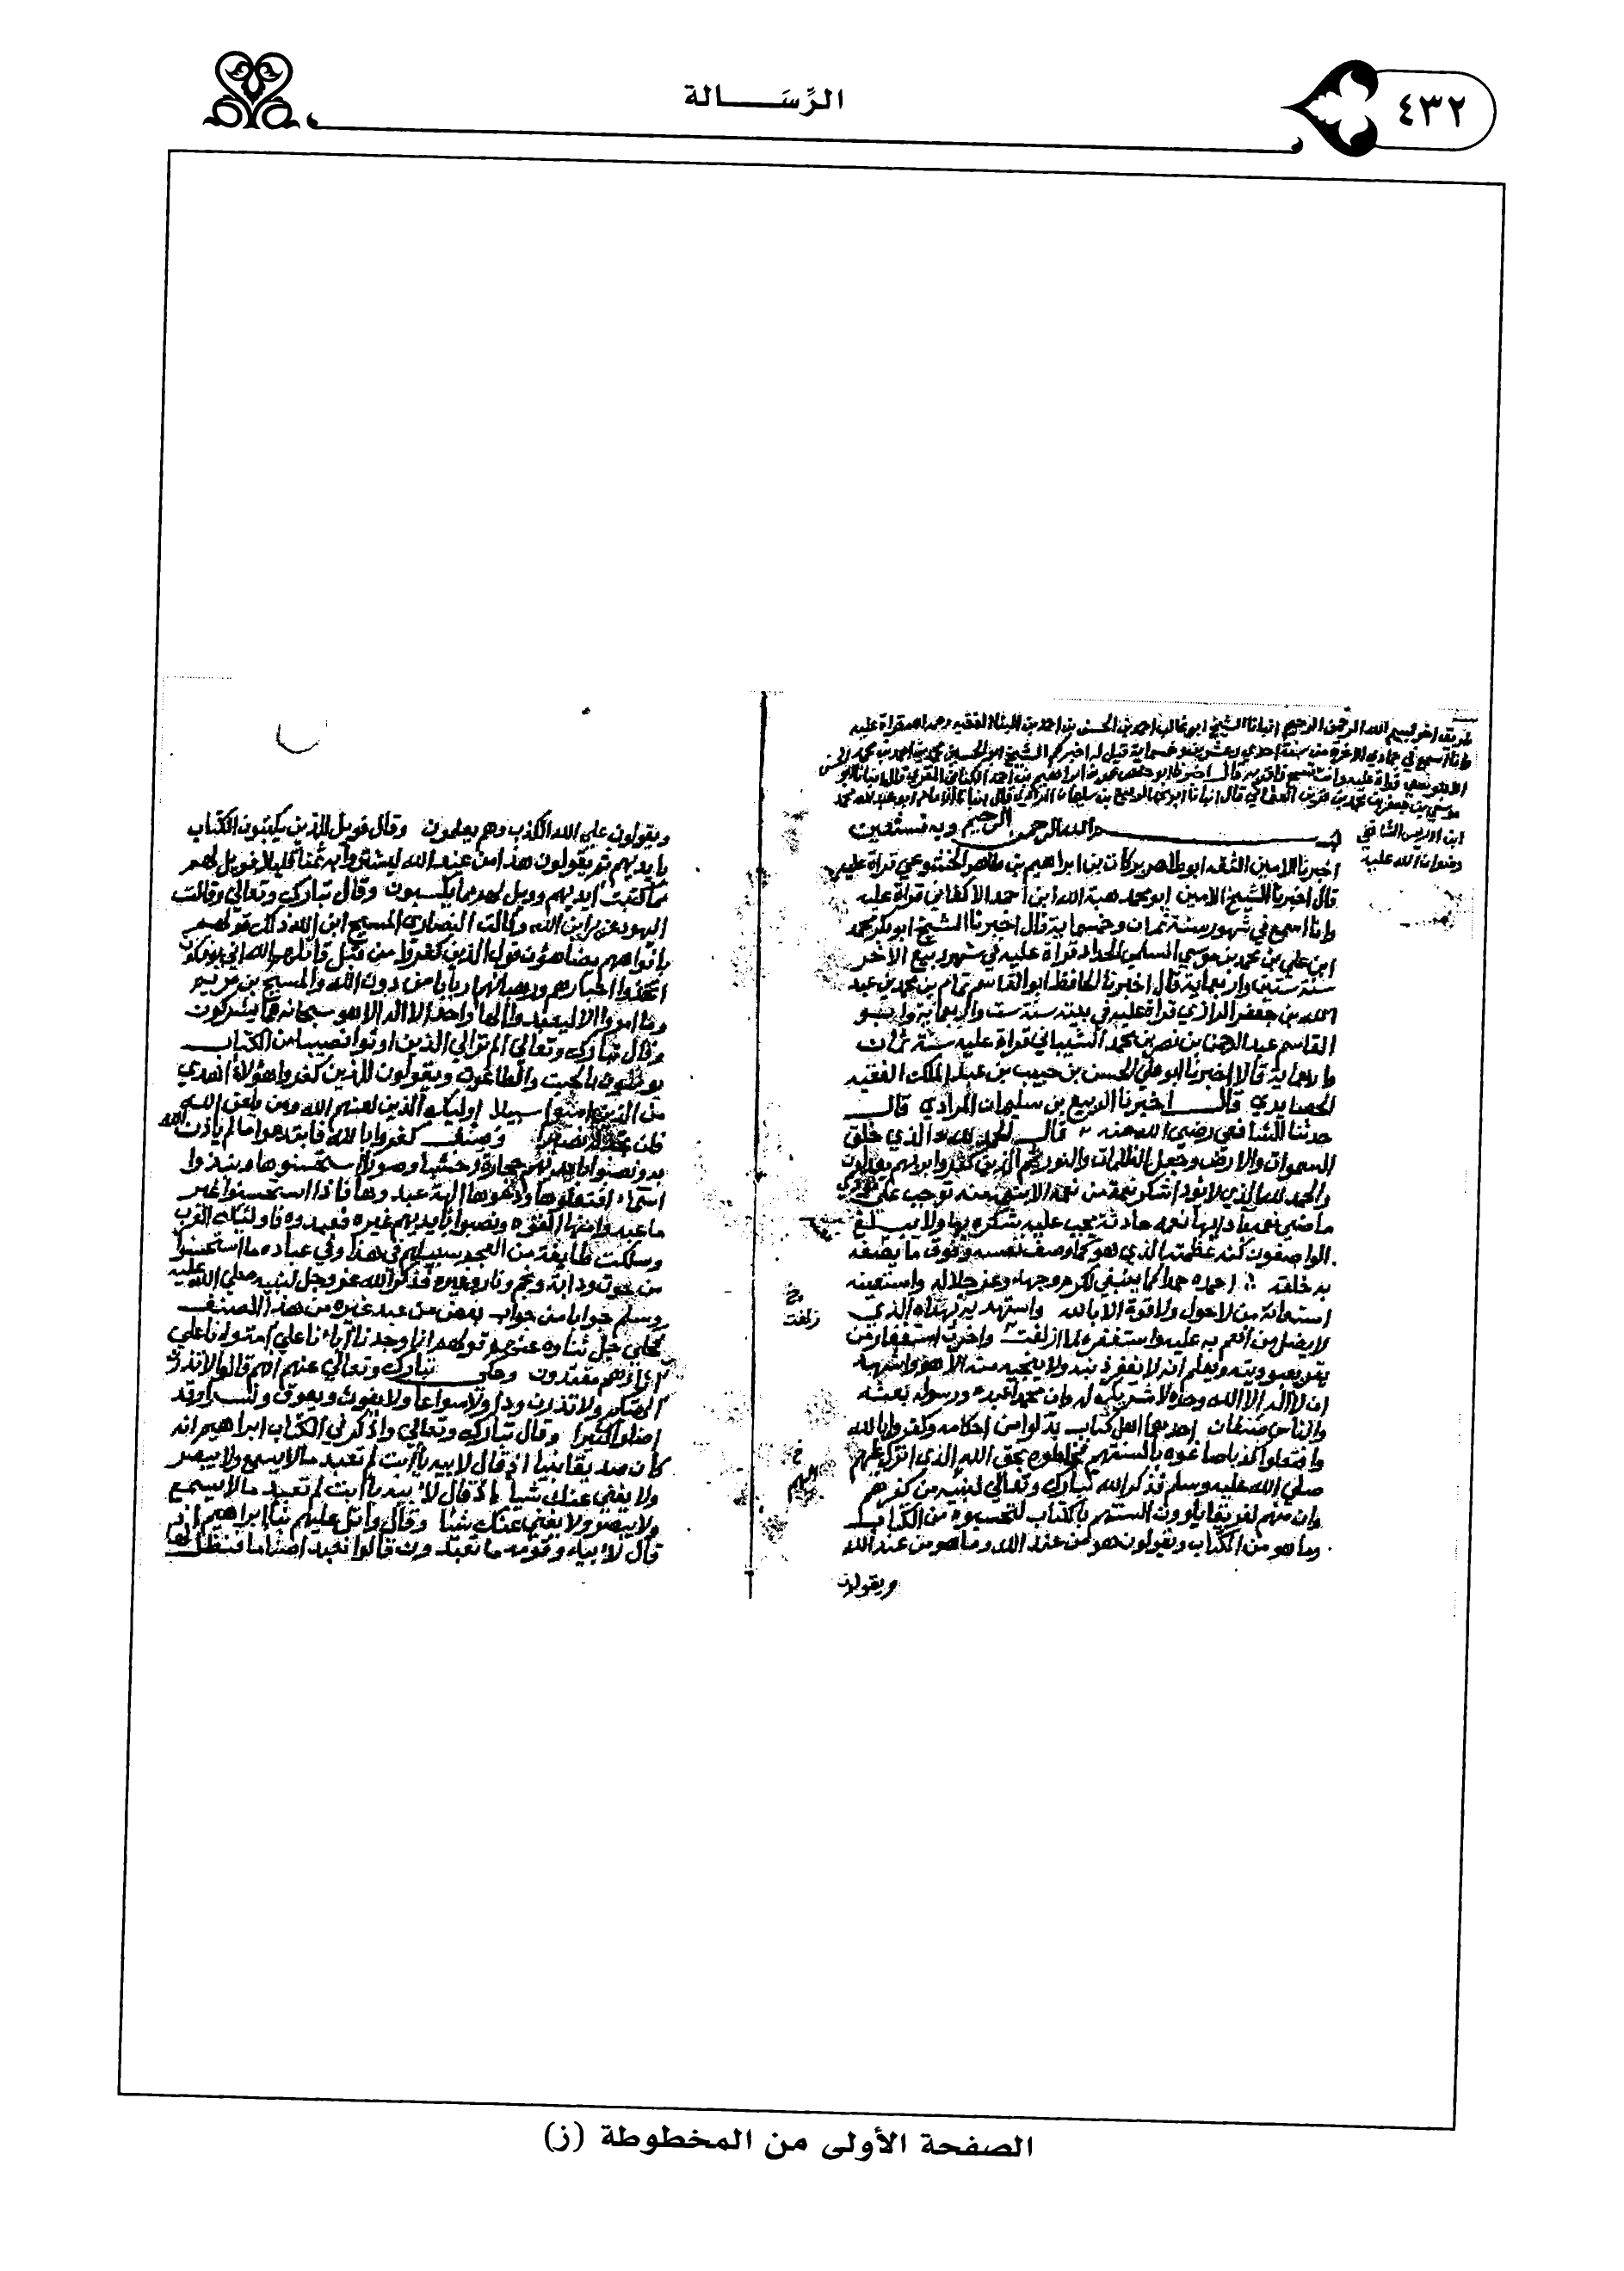 ٤٣٢
الرِّسَـــالة
طريق اخر بسم الله الرحمن الرحيم انبانا الشيخ ابو غالب احمد بن الحسن بن احمد بن البناء الفقيه رحمه الله قراة عليه
وانا اسمع في جمادي الاخرة من سنة احدي وعشرين وخمسماية قيل له اخبركم الشيخ ابو الحسين محمد بن احمد بن محمد
قراة عليه وانت تسمع فاقر به قال اخبرنا ابو حفص عمر بن ابراهيم بن احمد الكتاني المقري قال انبانا ابو
قال انبانا ابو محمد الربيع بن سليمان المرادي قال انبانا الامام ابو عبد الله محمد
ابن ادريس الشافعي
رضوان الله عليه
بسم الله الرحمن الرحيم وبه نستعين
اخبرنا الامين الثقه ابو طاهر بركات بن ابراهيم بن طاهر الخشوعي قراة عليه
قال اخبرنا الشيخ الامين ابو محمد هبة الله ابن احمد الاكفاني قراة عليه
وانا اسمع في شهور سنة ثمان وخمسماية قال اخبرنا الشيخ ابو بكر محمد
ابن علي بن محمد بن موسي السلمي الحداد قراة عليه في شهر ربيع الاخر
سنة ستين واربعماية قال اخبرنا الحافظ ابو القاسم تمام بن محمد بن عبد
الله بن جعفر الرازي قراة عليه في بيته سنة ست واربعماية وابو
القاسم عبد الرحمن بن نصر بن محمد الشيباني قراة عليه سنة ثمان
واربعماية قالا اخبرنا ابو علي الحسن بن حبيب بن عبد الملك الفقيه
الحصايري قال اخبرنا الربيع بن سليمان المرادي قال
حدثنا الشافعي رضي الله عنه قال الحمد لله الذي خلق
السموات والارض وجعل الظلمات والنور ثم الذين كفروا بربهم يعدلون
والحمد لله الذي لا تودا شكر نعمة من نعمه الا بنعمة منه توجب علي مودي
ماضي نعمه بادايها نعمه حادثة يجب عليه شكره بها ولا يبلغ
الواصفون كنه عظمته الذي هو كما وصف نفسه وفوق ما يصفه
به خلقه احمده حمدا كما ينبغي لكرم وجهه وعز جلاله واستعينه
استعانة من لا حول ولا قوة الا بالله واستهديه بهداه الذي
لا يضل من انعم به عليه واستغفره لما ازلفت واخرت استغفار من
يقر بعبوديته ويعلم انه لا يغفر ذنبه ولا ينجيه منه الا هو واشهد
ان لا اله الا الله وحده لا شريك له وان محمدا عبده ورسوله بعثه
والناس صنفان احدهما اهل كتاب بدلوا من احكامه وكفروا بالله
وافتعلوا كذبا صاغوه بالسنتهم فخلطوه بحق الله الذي انزل عليهم
صلي الله عليه وسلم فذكر الله تبارك وتعالي لنبيه من كفرهم
وان منهم لفريقا يلوون السنتهم بالكتاب لتحسبوه من الكتاب
وما هو من الكتاب ويقولون هو من عند الله وما هو من عند الله
ويقولون
زلفت
ويقولون علي الله الكذب وهم يعلمون وقال فويل للذين يكتبون الكتاب
بايديهم ثم يقولون هذا من عند الله ليشتروا به ثمنا قليلا فويل لهم
مما كتبت ايديهم وويل لهم مما يكسبون وقال تبارك وتعالي وقالت
اليهود عزير ابن الله وقالت النصاري المسيح ابن الله ذلك قولهم
بافواههم يضاهؤن قول الذين كفروا من قبل قاتلهم الله اني يوفكون
اتخذوا احبارهم ورهبانهم اربابا من دون الله والمسيح بن مريم
وما امروا الا ليعبدوا الها واحدا لا اله الا هو سبحانه عما يشركون
وقال تبارك وتعالي الم تر الي الذين اوتوا نصيبا من الكتاب
يومنون بالجبت والطاغوت ويقولون للذين كفروا هؤلاء اهدي
من الذين امنوا سبيلا اوليك الذين لعنهم الله ومن يلعن الله
فلن تجد له نصيرا وصنف كفروا بالله فابتدعوا ما لم ياذن به الله
ونصبوا بايديهم حجارة وخشبا وصورا استحسنوها ونبذوا
اسماء افتعلوها ودعوها الهة عبدوها فاذا استحسنوا غير
ما عبدوا منها القوه ونصبوا بايديهم غيره فعبدوه فاوليك العرب
وسلكت طايفة من العجم سبيلهم في هذا وفي عبادة ما استحسنوا
من حوت ودابة ونجم ونار وغيره فذكر الله عز وجل لنبيه صلي الله عليه
وسلم جوابا من جواب بعض من عبد غيره من هذا الصنف
فحكي جل ثناوه عنهم قولهم انا وجدنا آباءنا علي امة وانا علي
آثارهم مقتدون وحكي تبارك وتعالي عنهم انهم قالوا لا تذرن
الهتكم ولا تذرن ودا ولا سواعا ولا يغوث ويعوق ونسرا وقد
اضلوا كثيرا وقال تبارك وتعالي واذكر في الكتاب ابراهيم انه
كان صديقا نبيا اذ قال لابيه يا ابت لم تعبد ما لا يسمع ولا يبصر
ولا يغني عنك شيا اذ قال لابيه يا ابت لم تعبد ما لا يسمع
ولا يبصر ولا يغني عنك شيئا وقال واتل عليهم نبا ابراهيم اذ
قال لابيه وقومه ما تعبدون قالوا نعبد اصناما فنظل لها
الصفحة الأولى من المخطوطة (ز)